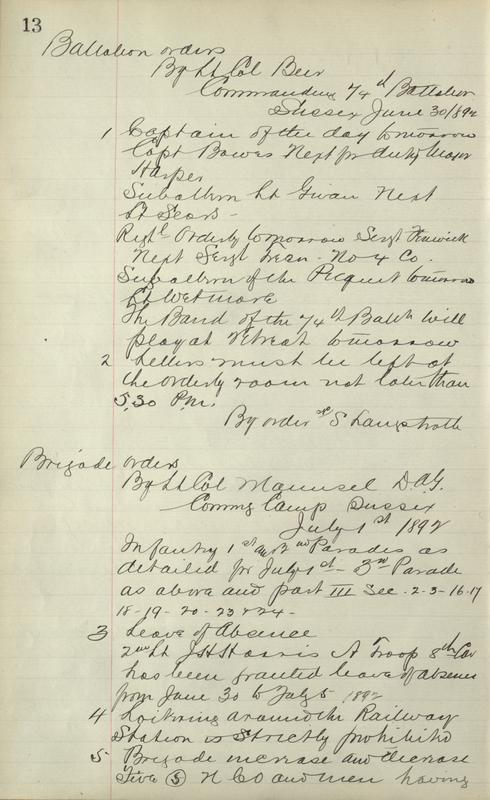 13
Battalion orders
By Lt Col Beer
Commanding 74th Battalion
Sussex June 30/892
1 Captain of the day tomorrow
Capt Bowes Next for duty Major
Harper
Subaltern Lt Givan Next
Lt Sears -
Regtl Orderly tomorrow Sergt Fenwick
Next Sergt Fean - No 4 Co.
Subaltern of the Picquet tomorrow
Lt Wetmore
The Band of the 74th Battn will
play at Retreat tomorrow
2 Letters must be left at
the orderly room not later than
5,30 P.M.
By order S Langstroth
Brigade orders
By Lt Col Maunsel D.A.G.
Commg Camp Sussex
July 1st 1892
Infantry 1st and 2nd Parades as
detailed for July 1st - 3rd Parade
as above and part III Sec. 2-3-16-17
18-19-20-23 & 24-
3 Leave of Absence
2nd Lt J.H. Harris A Troop 8th Cav
has been granted leave of absence
from June 30 to July 5 1892
4 Loitering around the Railway
Station is Strictly prohibited
5 Brigade increase and decrease
Five (5) N C O and men having